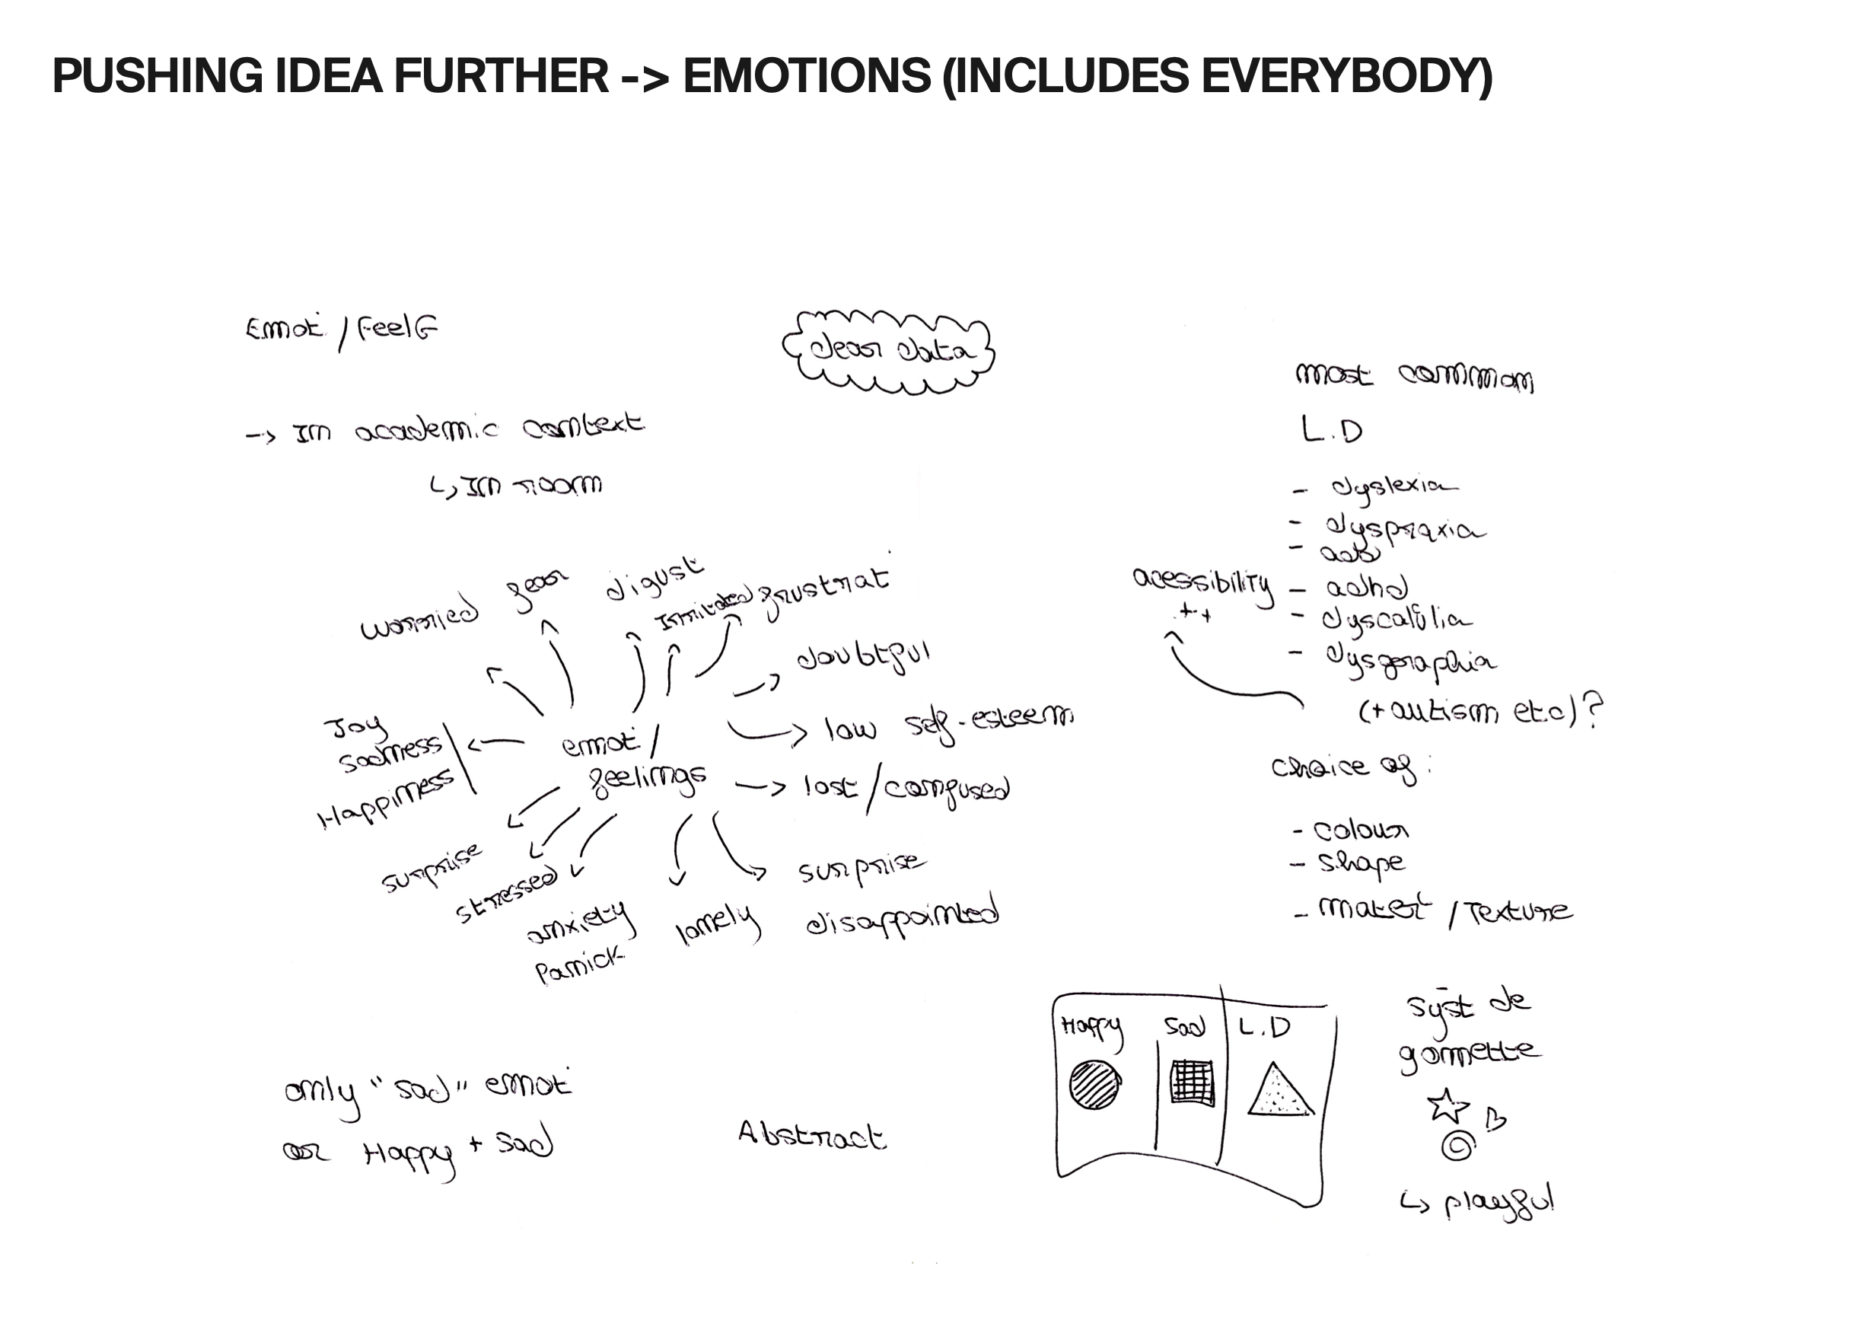 PUSHING IDEA FURTHER -> EMOTIONS (INCLUDES EVERYBODY)
Emot / FeelG
-> In academic context
↳ In room
dear data
worried
fear
digust
Irritated
frustrat
doubtful
low self-esteem
lost / confused
surprise
disappointed
lonely
anxiety
Panick
stressed
surprise
Joy
Sadness
Happiness
emot /
feelings
only "sad" emot
or Happy + Sad
Abstract
most common
L.D
- dyslexia
- dyspraxia
- add
- adhd
- dyscalulia
- dysgraphia
(+ autism etc)?
acessibility
++
choice of:
- colour
- shape
- mater / Texture
Happy
Sad
L.D
syst de
gomette
↳ playful